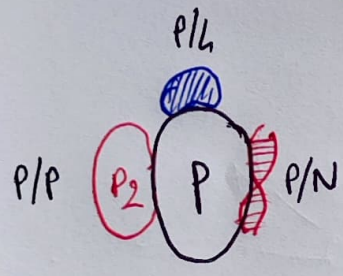 P/L
P/P
P2
P
P/N